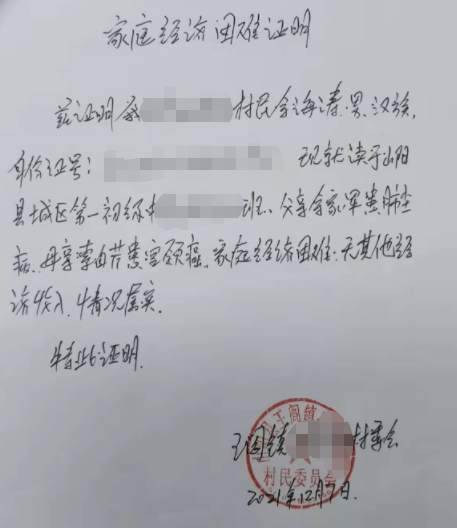 家庭经济困难证明
兹证明我村民余海涛,男,汉族,
身份证号: 现就读于山阳
县城区第一初级中 班、父亲余家军患肺尘
病,母亲 患宫颈癌、家庭经济困难、无其他经
济收入,情况属实.
特此证明.
王阎镇 村委会
王阎镇
村民委员会
2021年12月7日.